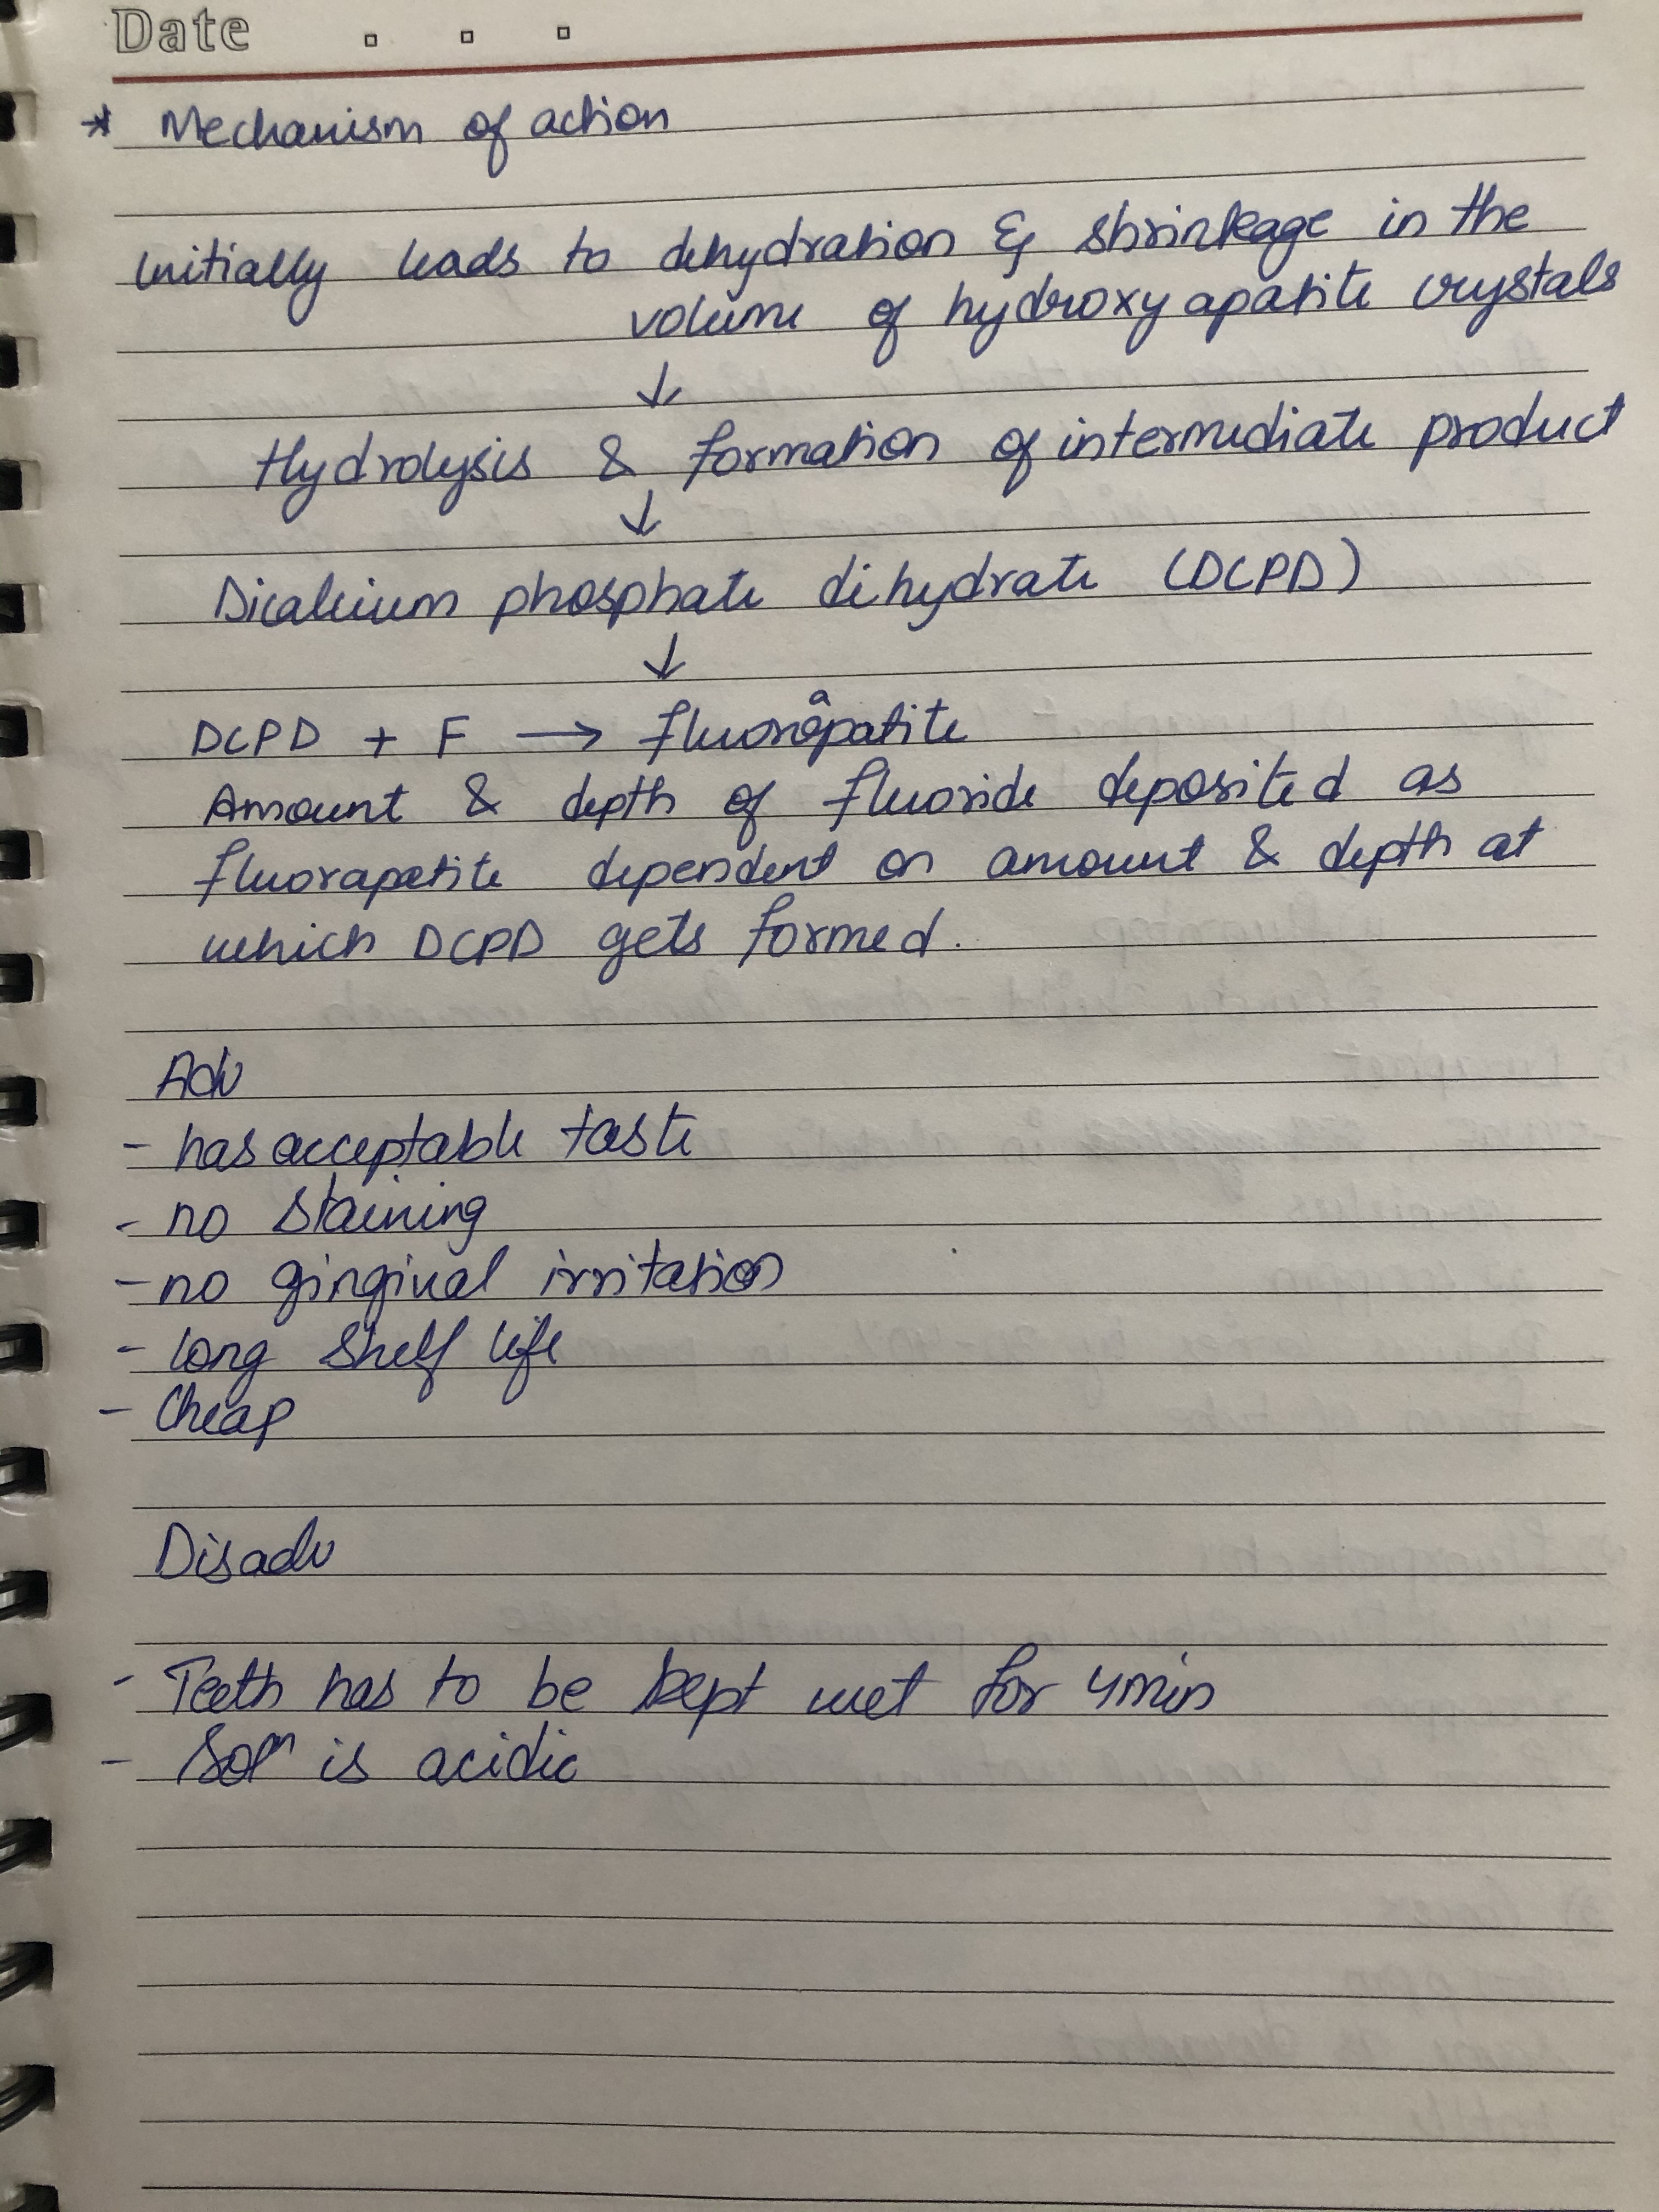 Date
* Mechanism of action
Initially leads to dehydration & shrinkage in the
volume of hydroxyapatite crystals
↓
Hydrolysis & formation of intermediate product
↓
Dicalcium phosphate dihydrate (DCPD)
↓
DCPD + F → fluorapatite
Amount & depth of fluoride deposited as
fluorapatite dependent on amount & depth at
which DCPD gets formed.
Adv
- has acceptable taste
- no staining
- no gingival irritation
- long shelf life
- Cheap
Disadv
- Teeth has to be kept wet for 4min
- Solⁿ is acidic